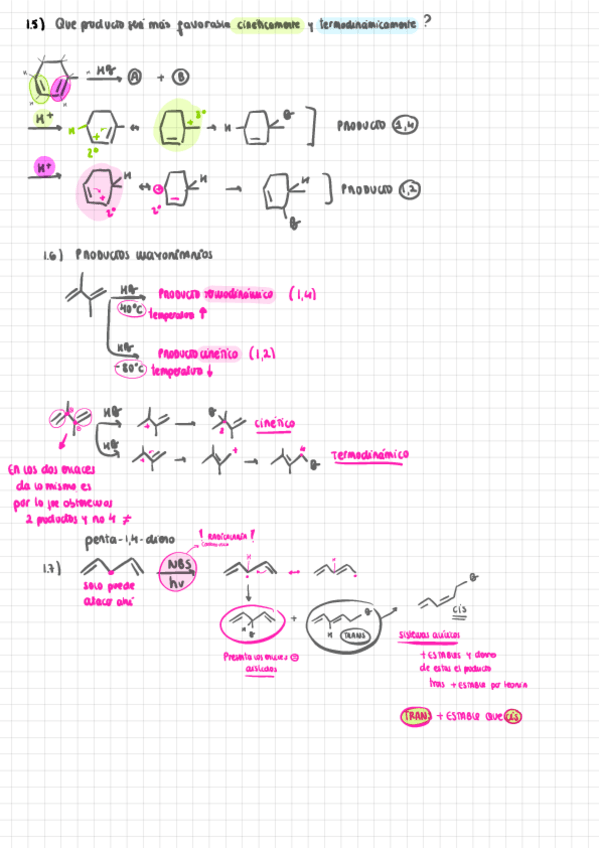 1.5) Que producto será más favorable cinéticamente y termodinámicamente?
HBr
A + B
H+
3º
Br
H
2º
PRODUCTO 1,4
H+
H
H
H
2º
2º
Br
PRODUCTO 1,2
1.6) PRODUCTOS mayoritarios
HBr
PRODUCTO termodinámico (1,4)
40ºC
temperatura ↑
HBr
PRODUCTO cinético (1,2)
-80ºC
temperatura ↓
HBr
Br
cinético
HBr
Br
Termodinámico
En los dos enlaces
da lo mismo es
por lo que obtenemos
2 productos y no 4 ≠
penta-1,4-dieno
! RADICALARIA !
1.7)
NBS
hν
solo puede
atacar ahí
Br
cis
+
H
Br
H
TRANS
Br
Presenta los enlaces
aislados
+ ESTABLES y dentro
de estas el producto
trans + ESTABLE por
TRANS + ESTABLE que cis